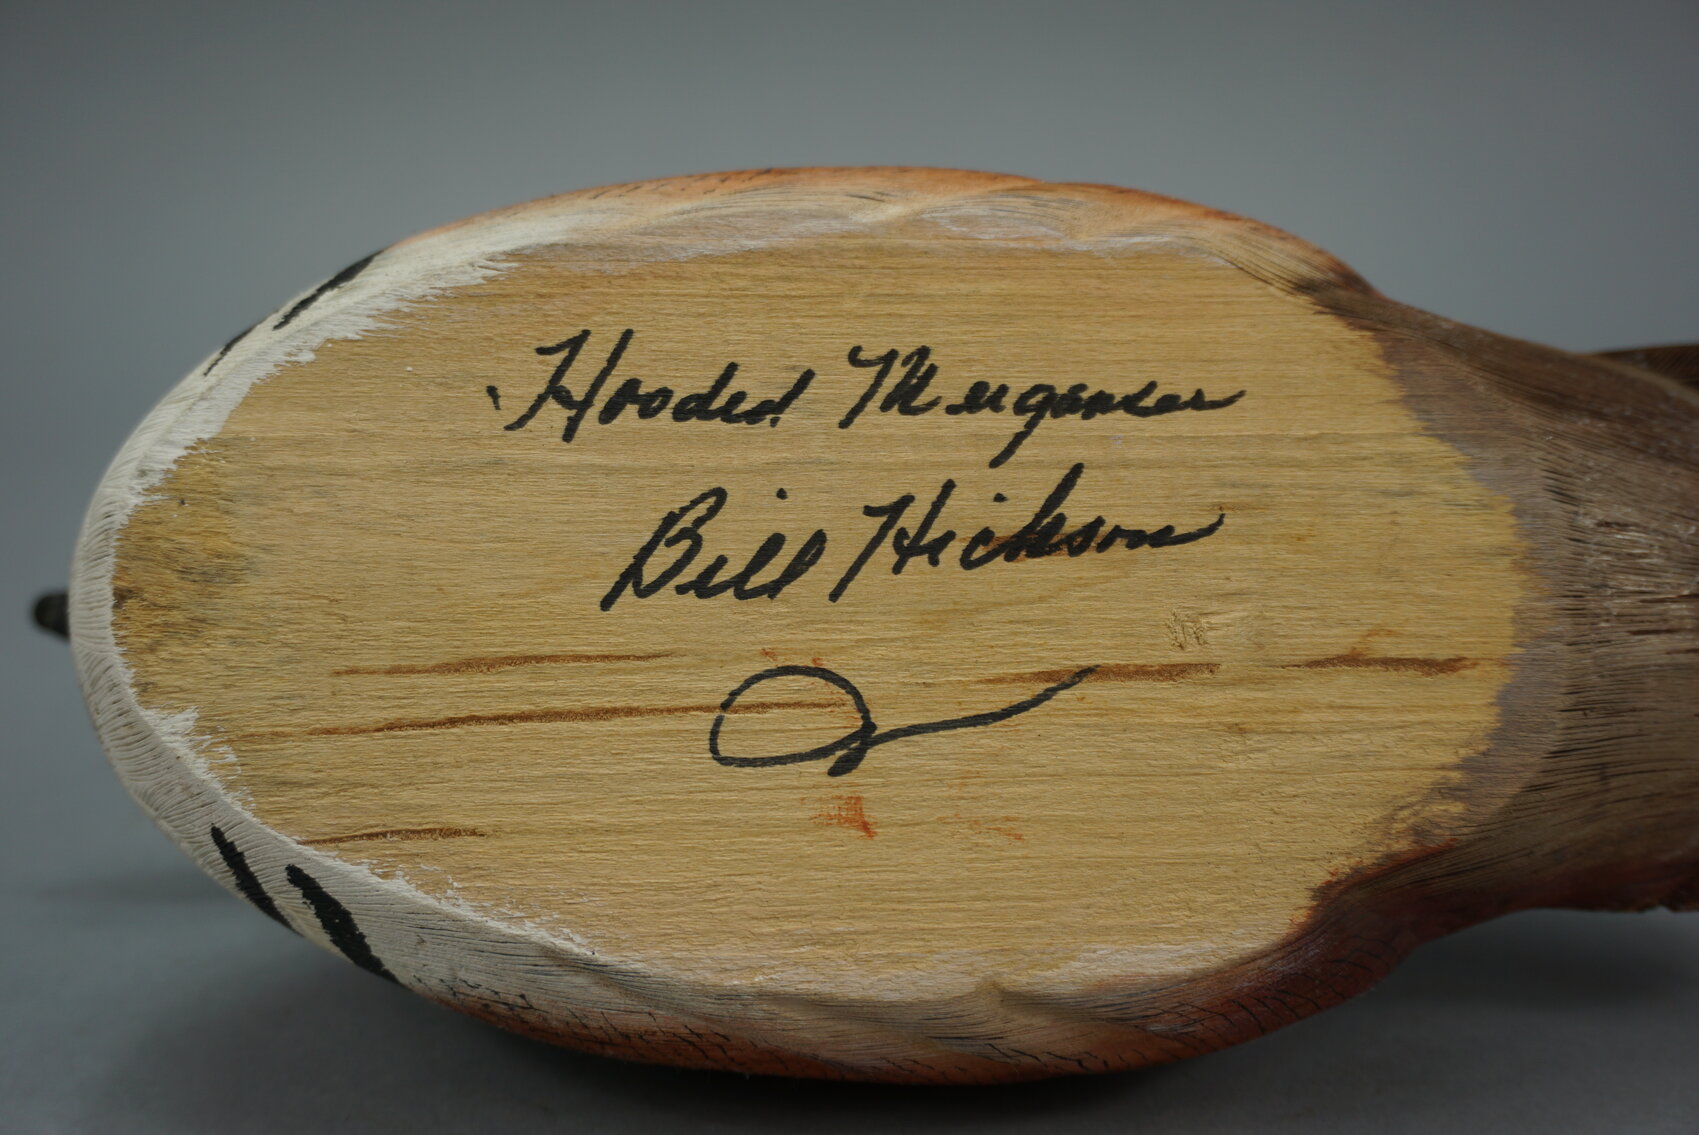 Hooded Merganser
Bill Hickson